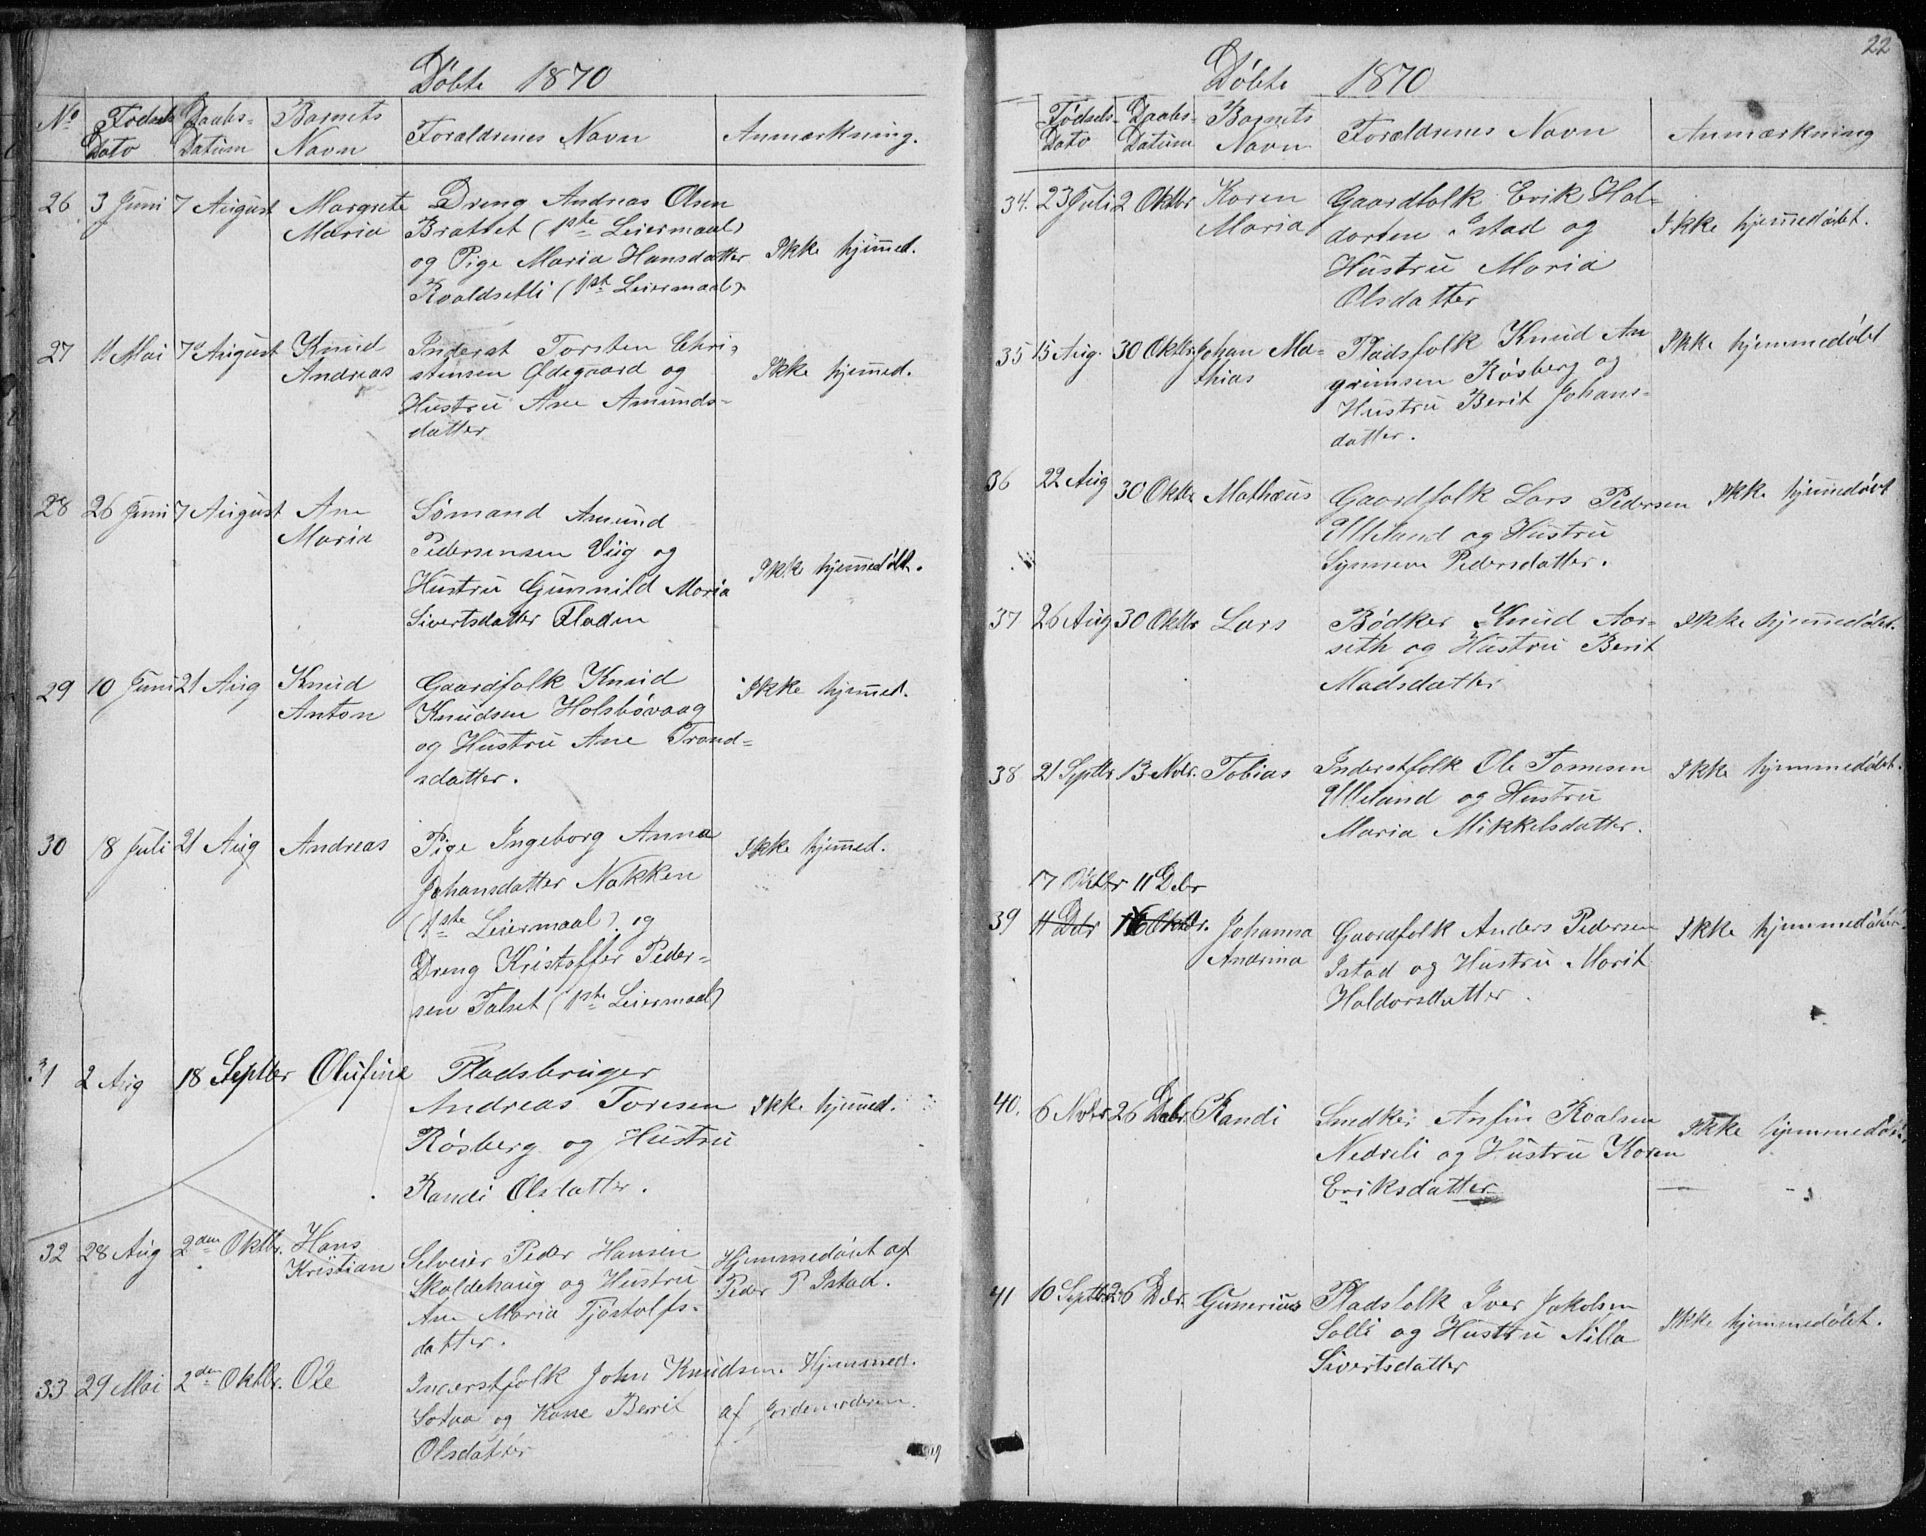 Døbte 1870
No Fødsels Daabs- Barnets
Dato Datum Navn Forældrenes Navn Anmærkning.
26 3 Juni 7 August Margrete Dreng Andreas Olsen
Maria Brattet (1ste Leiermaal)
og Pige Maria Hansdatter Ikke hjemmed.
Roaldsetli (1st Leiermaal).
27 11 Mai 7de August Knud Inderst Torsten Chri-
Andreas stensen Ødegaard og Ikke hjemmed.
Hustru Ane Amunds-
datter
28 26 Juni 7 August Ane Sømand Amund
Maria Pedersensen Viig og
Hustru Gunnild Maria Ikke hjemmedøbt.
Sivertsdatter Floden
29 10 Juni 21 Aug Knud Gaardfolk Knud Ikke hjemmed.
Anton Knudsen Holsbøvaag
og Hustru Ane Trond-
sdatter.
30 18 Juli 21 Aug Andreas Pige Ingeborg Anna Ikke hjemmed.
Johansdatter Nakken
(1ste Leiermaal) og
Dreng Kristoffer Peder-
sen Talset (1ste Leiermaal)
31 2 Aug 18 Septbr Olufine Pladsbruger
Andreas Toresen Ikke hjemmed.
Røsberg og Hustru
Randi Olsdatter.
32 28 Aug 2den Oktbr. Hans Selveier Peder Hansen Hjemmedøbt af
Kristian Skaldehaug og Hustru Peder P Istad.
Ane Maria Tjøstolfs-
datter.
33 29 Mai 2den Oktbr. Ole Inderstfolk John Knudsen Hjemmed.
Sotaa og Kone Berit af Jordemoderen.
Olsdatter
22
Døbte 1870
Fødsels Daabs- Barnets
Dato Datum Navn Forældrenes Navn Anmærkning
34. 23 Juli 2 Oktbr Karen Gaardfolk Erik Hal-
Maria dorsen Istad og Ikke hjemmedøbt.
Hustru Maria
Olsdatter
35 15 Aug. 30 Oktbr. Johan Ma- Pladsfolk Knud An Ikke hjemmedøbt
thias grimsen Røsberg og
Hustru Berit Johans-
datter.
36 22 Aug 30 Oktbr Mathæus Gaardfolk Lars Pedersen Ikke hjemmedøbt
Ulleland og Hustru
Synneve Pedersdatter.
37 26 Aug 30 Oktbr Lars Bødker Knud Aar- Ikke hjemmedøbt.
seth og Hustru Berit
Madsdatter
38 21 Septbr 13 Novbr. Tobias Inderstfolk Ole Tomesen Ikke hjemmedøbt.
Ulleland og Hustru
Maria Mikkelsdatter.
17 Oktbr 11 Debr
39 11 Debr Oktbr. Johanna Gaardfolk Anders Pedersen Ikke hjemmedøbt.
Andrina Istad og Hustru Marit
Haldorsdatter.
40. 6 Novbr 26 Debr Randi Snedker Anfin Roalsen Ikke hjemmedøbt.
Nedreli og Hustru Karen
Eriksdatter
41 10 Septbr 26 Debr. Gunerius Pladsfolk Iver Jakobsen
Solli og Hustru Nilla Ikke hjemmedøbt.
Sivertsdatter